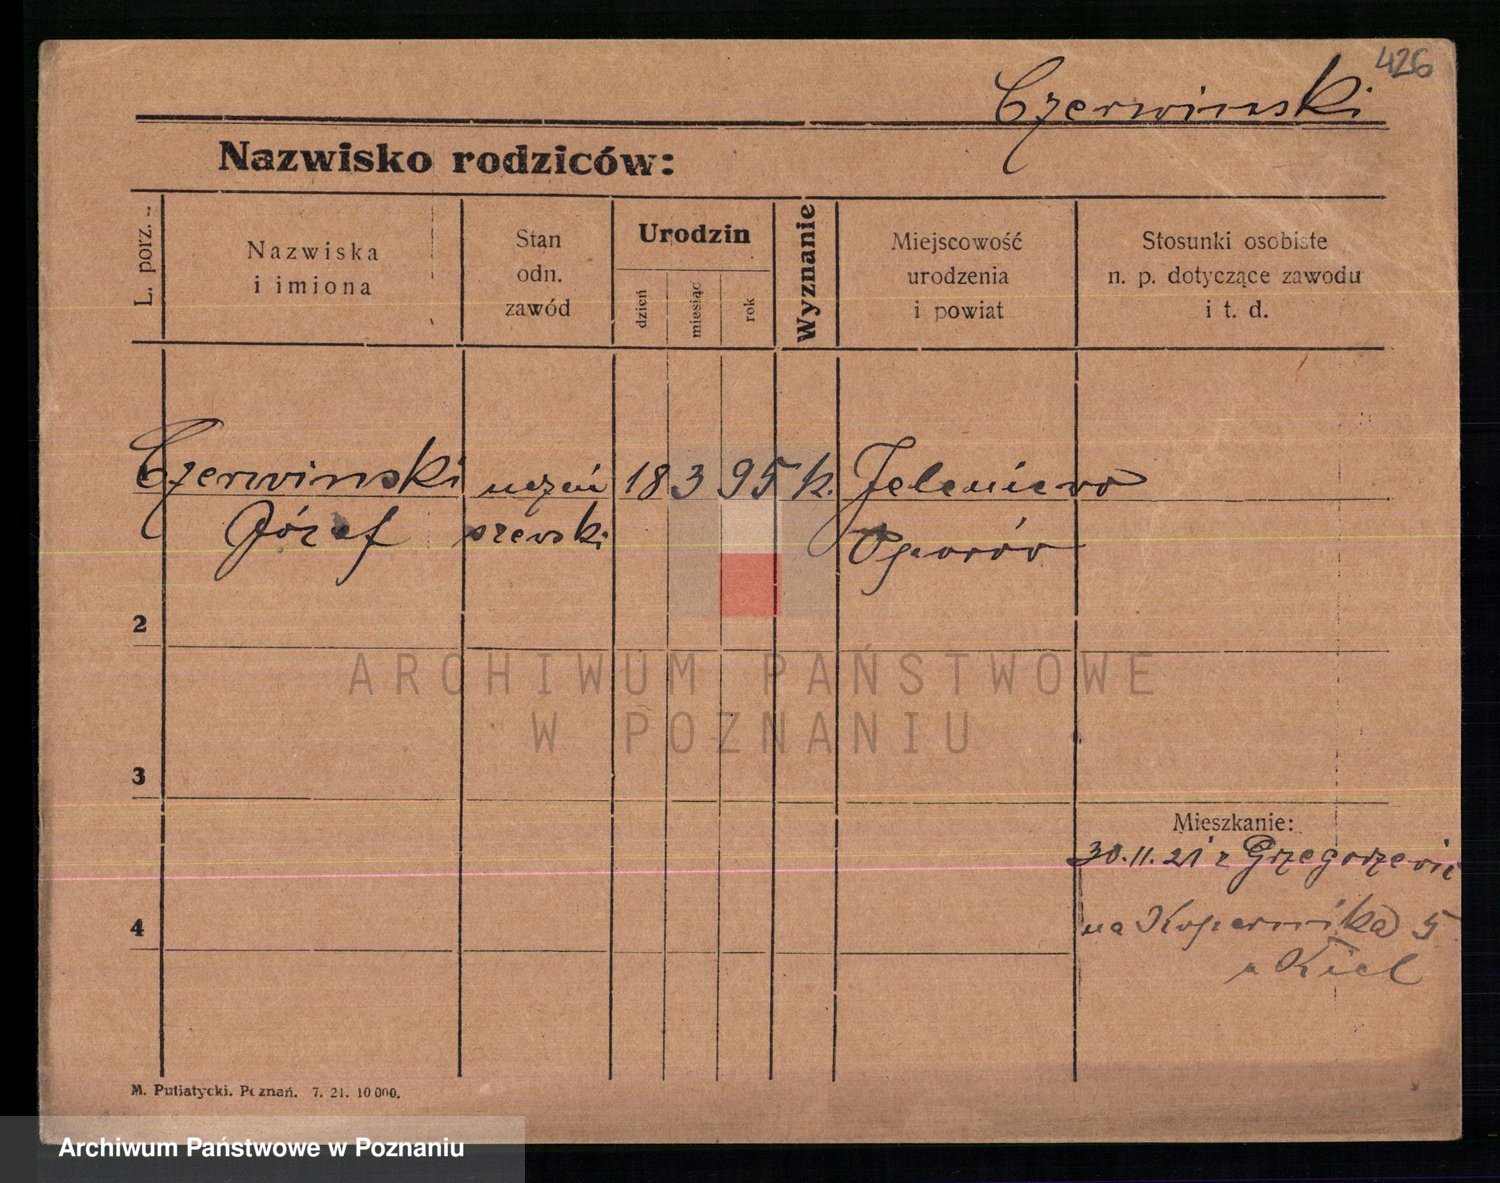 426
Czerwinski
Nazwisko rodziców:
L. porz.
Nazwiska
i imiona
Stan
odn.
zawód
Urodzin
dzień
miesiąc
rok
Wyznanie
Miejscowość
urodzenia
i powiat
Stosunki osobiste
n. p. dotyczące zawodu
i t. d.
Czerwinski uczeń 18 3 95 k. Jeleniewo
Józef szewski Oporów
2
3
4
Mieszkanie:
30.11.21 z Grzegorzewic
na Kopernika 5
u Kiel
ARCHIWUM PAŃSTWOWE
W POZNANIU
M. Putiatycki. Poznań. 7. 21. 10 000.
Archiwum Państwowe w Poznaniu